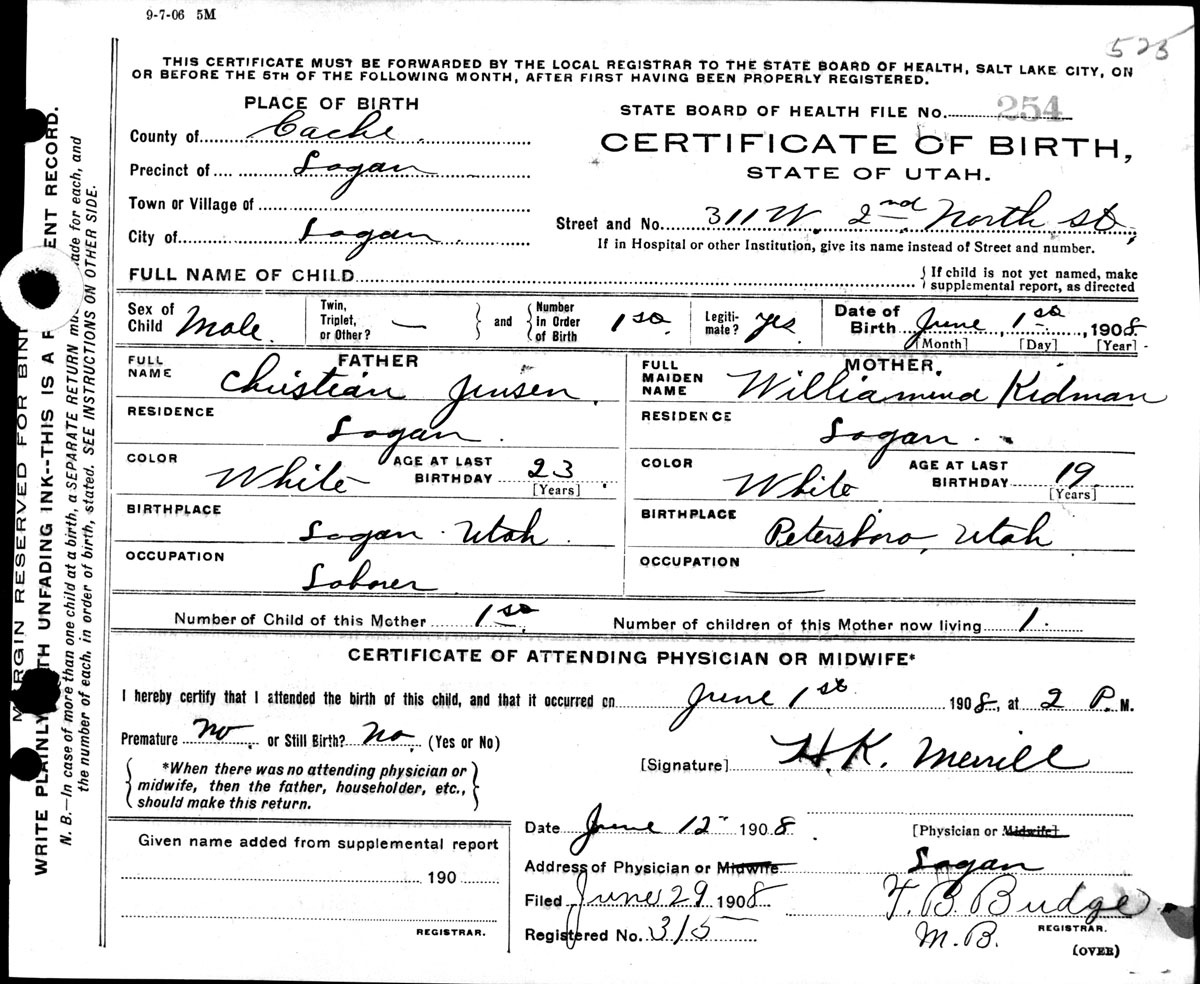 9-7-06 5M
525
THIS CERTIFICATE MUST BE FORWARDED BY THE LOCAL REGISTRAR TO THE STATE BOARD OF HEALTH, SALT LAKE CITY, ON
OR BEFORE THE 5TH OF THE FOLLOWING MONTH, AFTER FIRST HAVING BEEN PROPERLY REGISTERED.
PLACE OF BIRTH
County of Cache
Precinct of Logan
Town or Village of
City of Logan
STATE BOARD OF HEALTH FILE No. 254
CERTIFICATE OF BIRTH,
STATE OF UTAH.
Street and No. 311 W. 2nd North St,
If in Hospital or other Institution, give its name instead of Street and number.
FULL NAME OF CHILD
{ If child is not yet named, make
supplemental report, as directed
Sex of Child Male.
Twin, Triplet, or Other? —
and
Number in Order of Birth 1st
Legitimate? yes
Date of Birth June, 1st, 1908
[Month] [Day] [Year]
FATHER
FULL NAME Christian Jensen.
RESIDENCE Logan.
COLOR White
AGE AT LAST BIRTHDAY 23
[Years]
BIRTHPLACE Logan Utah.
OCCUPATION Laborer
MOTHER.
FULL MAIDEN NAME Williamina Kidman
RESIDENCE Logan.
COLOR White
AGE AT LAST BIRTHDAY 19
[Years]
BIRTHPLACE Petersboro, Utah
OCCUPATION
Number of Child of this Mother 1st
Number of children of this Mother now living 1
CERTIFICATE OF ATTENDING PHYSICIAN OR MIDWIFE*
I hereby certify that I attended the birth of this child, and that it occurred on June 1st 1908, at 2 P.M.
Premature No, or Still Birth? No, (Yes or No)
{ *When there was no attending physician or
midwife, then the father, householder, etc.,
should make this return. }
[Signature] H.K. Merrill
Date June 12 1908.
[Physician or Midwife]
Address of Physician or Midwife Logan
Filed June 29 1908
F. B. Budge
M.B.
REGISTRAR.
Registered No. 315
(OVER)
Given name added from supplemental report
190
REGISTRAR.
MARGIN RESERVED FOR
WRITE PLAINLY UNFADING INK--THIS IS A RECORD.
N. B.—In case of more than one child at a birth, a SEPARATE RETURN made for each, and
the number of each, in order of birth, stated. SEE INSTRUCTIONS ON OTHER SIDE.